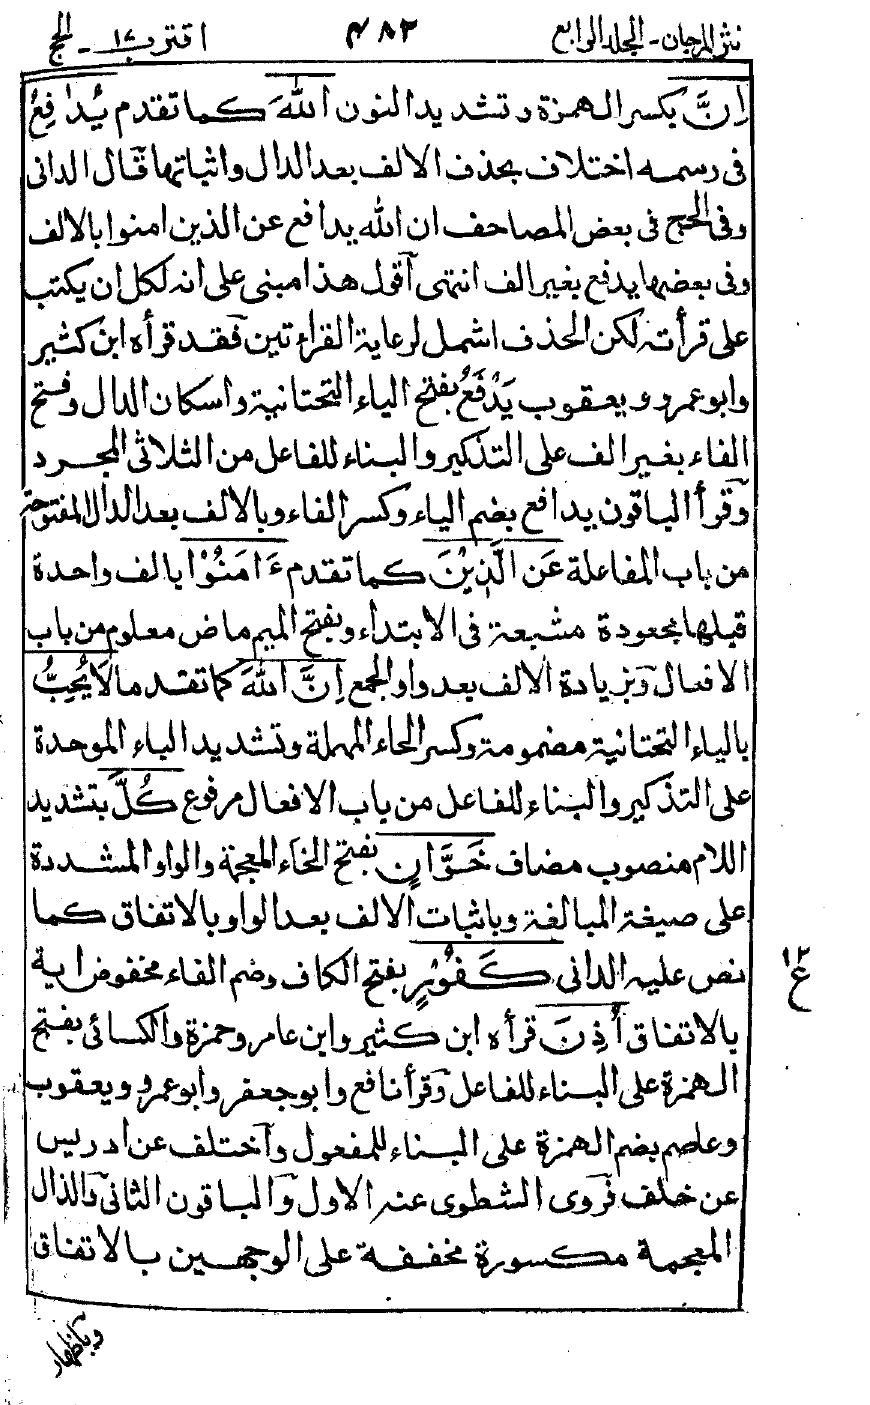 نثر المرجان - المجلد الرابع ٤٨٢ اقترب ١٧ - الحج
اِنَّ بكسر الهمزة وتشديد النون اللهَ كما تقدم يُدٰفِعُ
فى رسمه اختلاف بحذف الالف بعد الدال واثباتها قال الدانى
وفى الحج فى بعض المصاحف ان الله يدافع عن الذين امنوا بالالف
وفى بعضها يدفع بغير الف انتهى اقول هذا مبنى على انه لكل ان يكتب
على قرأته لكن الحذف اشمل لرعاية القراءتين فقد قرأه ابن كثير
وابو عمرو ويعقوب يَدْفَعُ بفتح الياء التحتانية واسكان الدال وفتح
الفاء بغير الف على التذكير والبناء للفاعل من الثلاثى المجرد
وقرأ الباقون يدافع بضم الياء وكسر الفاء وبالالف بعد الدال المفتوحة
من باب المفاعلة عَنِ الَّذِيْنَ كما تقدم ءَامَنُوْا بالف واحدة
قبلها مجعودة مشبعة فى الابتداء وبفتح الميم ماض معلوم من باب
الافعال وبزيادة الالف بعد واو الجمع اِنَّ اللهَ كما تقدما لَا يُحِبُّ
بالياء التحتانية مضمومة وكسر الحاء المهملة وتشديد الباء الموحدة
على التذكير والبناء للفاعل من باب الافعال مرفوع كُلَّ بتشديد
اللام منصوب مضاف خَوَّانٍ بفتح الخاء المعجمة والواو المشددة
على صيغة المبالغة وباثبات الالف بعد الواو بالاتفاق كما
نص عليه الدانى كَفُوْرٍ بفتح الكاف وضم الفاء مخفوض اية
بالاتفاق اُذِنَ قرأه ابن كثير وابن عامر وحمزة والكسائى بفتح
الهمزة على البناء للفاعل وقرأ نافع وابو جعفر وابو عمرو ويعقوب
وعاصم بضم الهمزة على البناء للمفعول واختلف عن ادريس
عن خلف فروى الشطوى عنه الاول والباقون الثانى والذال
المعجمة مكسورة مخففة على الوجهين بالاتفاق
١٢
ع
وباظهار